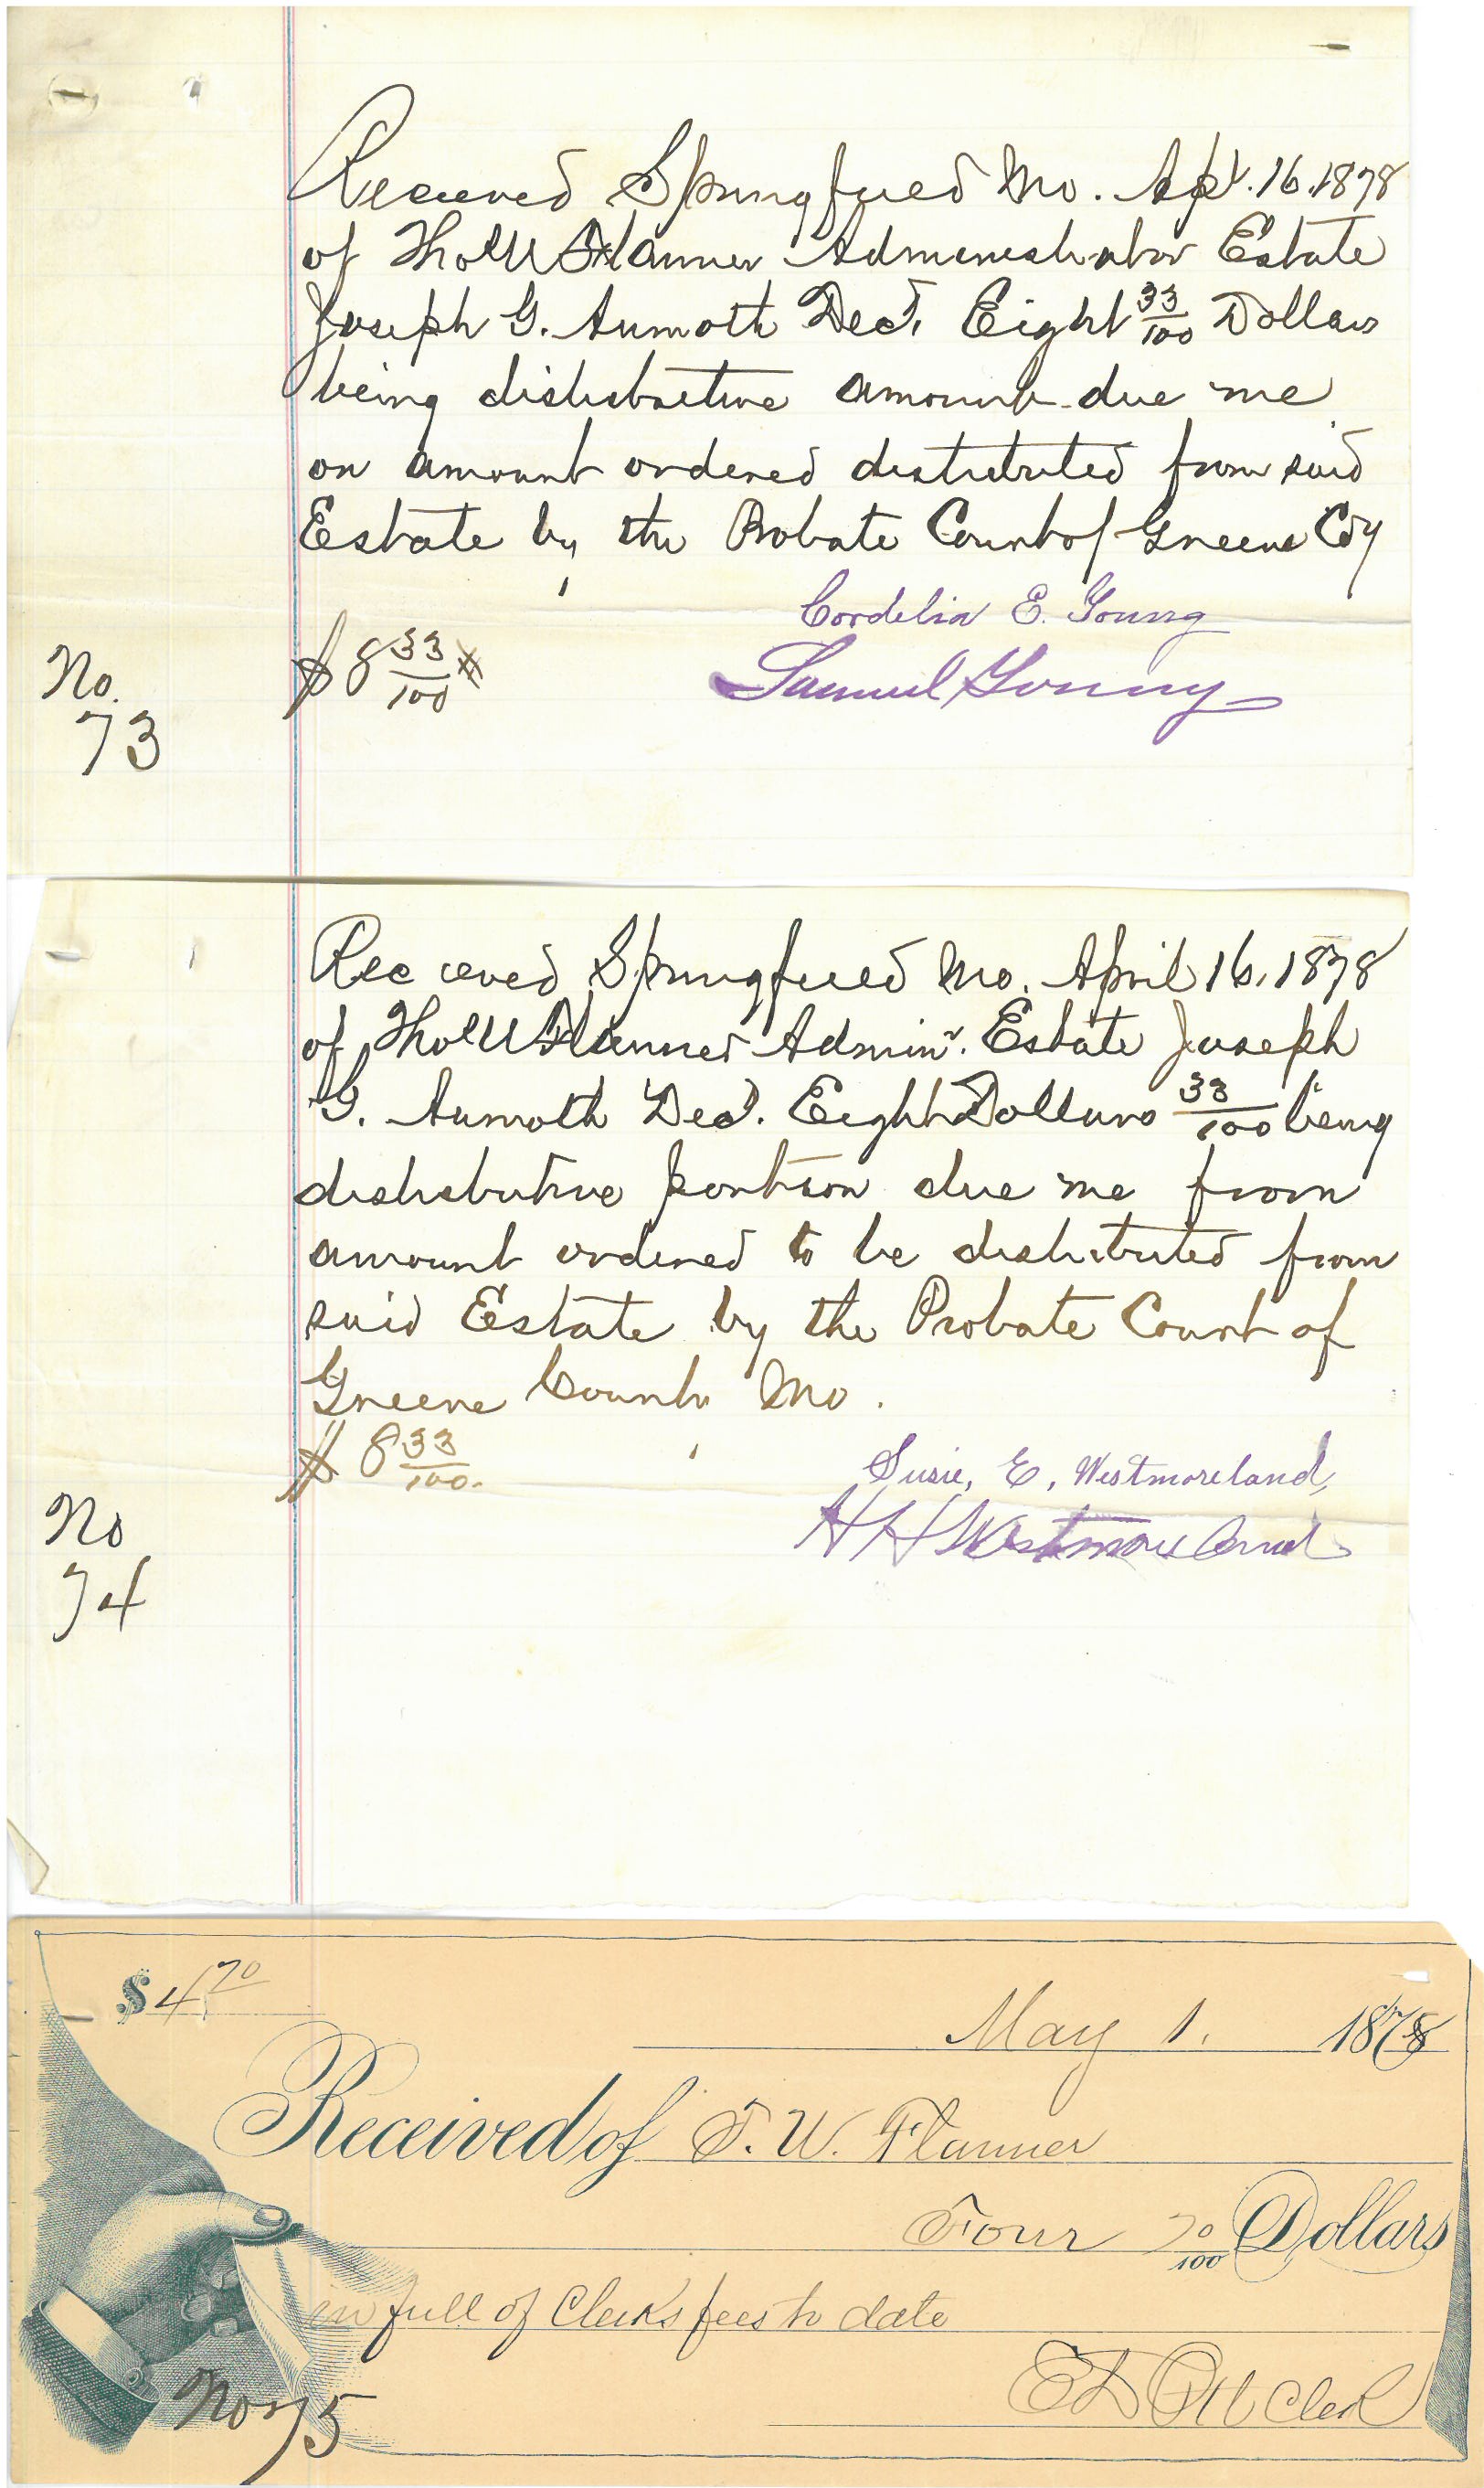 Received Springfield Mo. Apl. 16. 1878
of Thos W Flanner Administrator Estate
Joseph G. Aumoth Decd. Eight 33/100 Dollars
being distributive amount due me
on amount ordered distributed from said
Estate by the Probate Court of Greene Coy
Cordelia E. Young
$ 8 33/100
Samuel Young
No.
73
Received Springfield Mo. April 16. 1878
of Thos W Flanner Adminr. Estate Joseph
G. Aumoth Decd. Eight Dollars 33/100 being
distributive portion due me from
amount ordered to be distributed from
said Estate by the Probate Court of
Greene County Mo.
$ 8 33/100.
Susie, E, Westmoreland,
H H Westmoreland
No
74
$ 4.70
May 1. 1878
Received of T. W. Flanner
Four 70/100 Dollars
in full of Clerks fees to date
Clerk
No 75